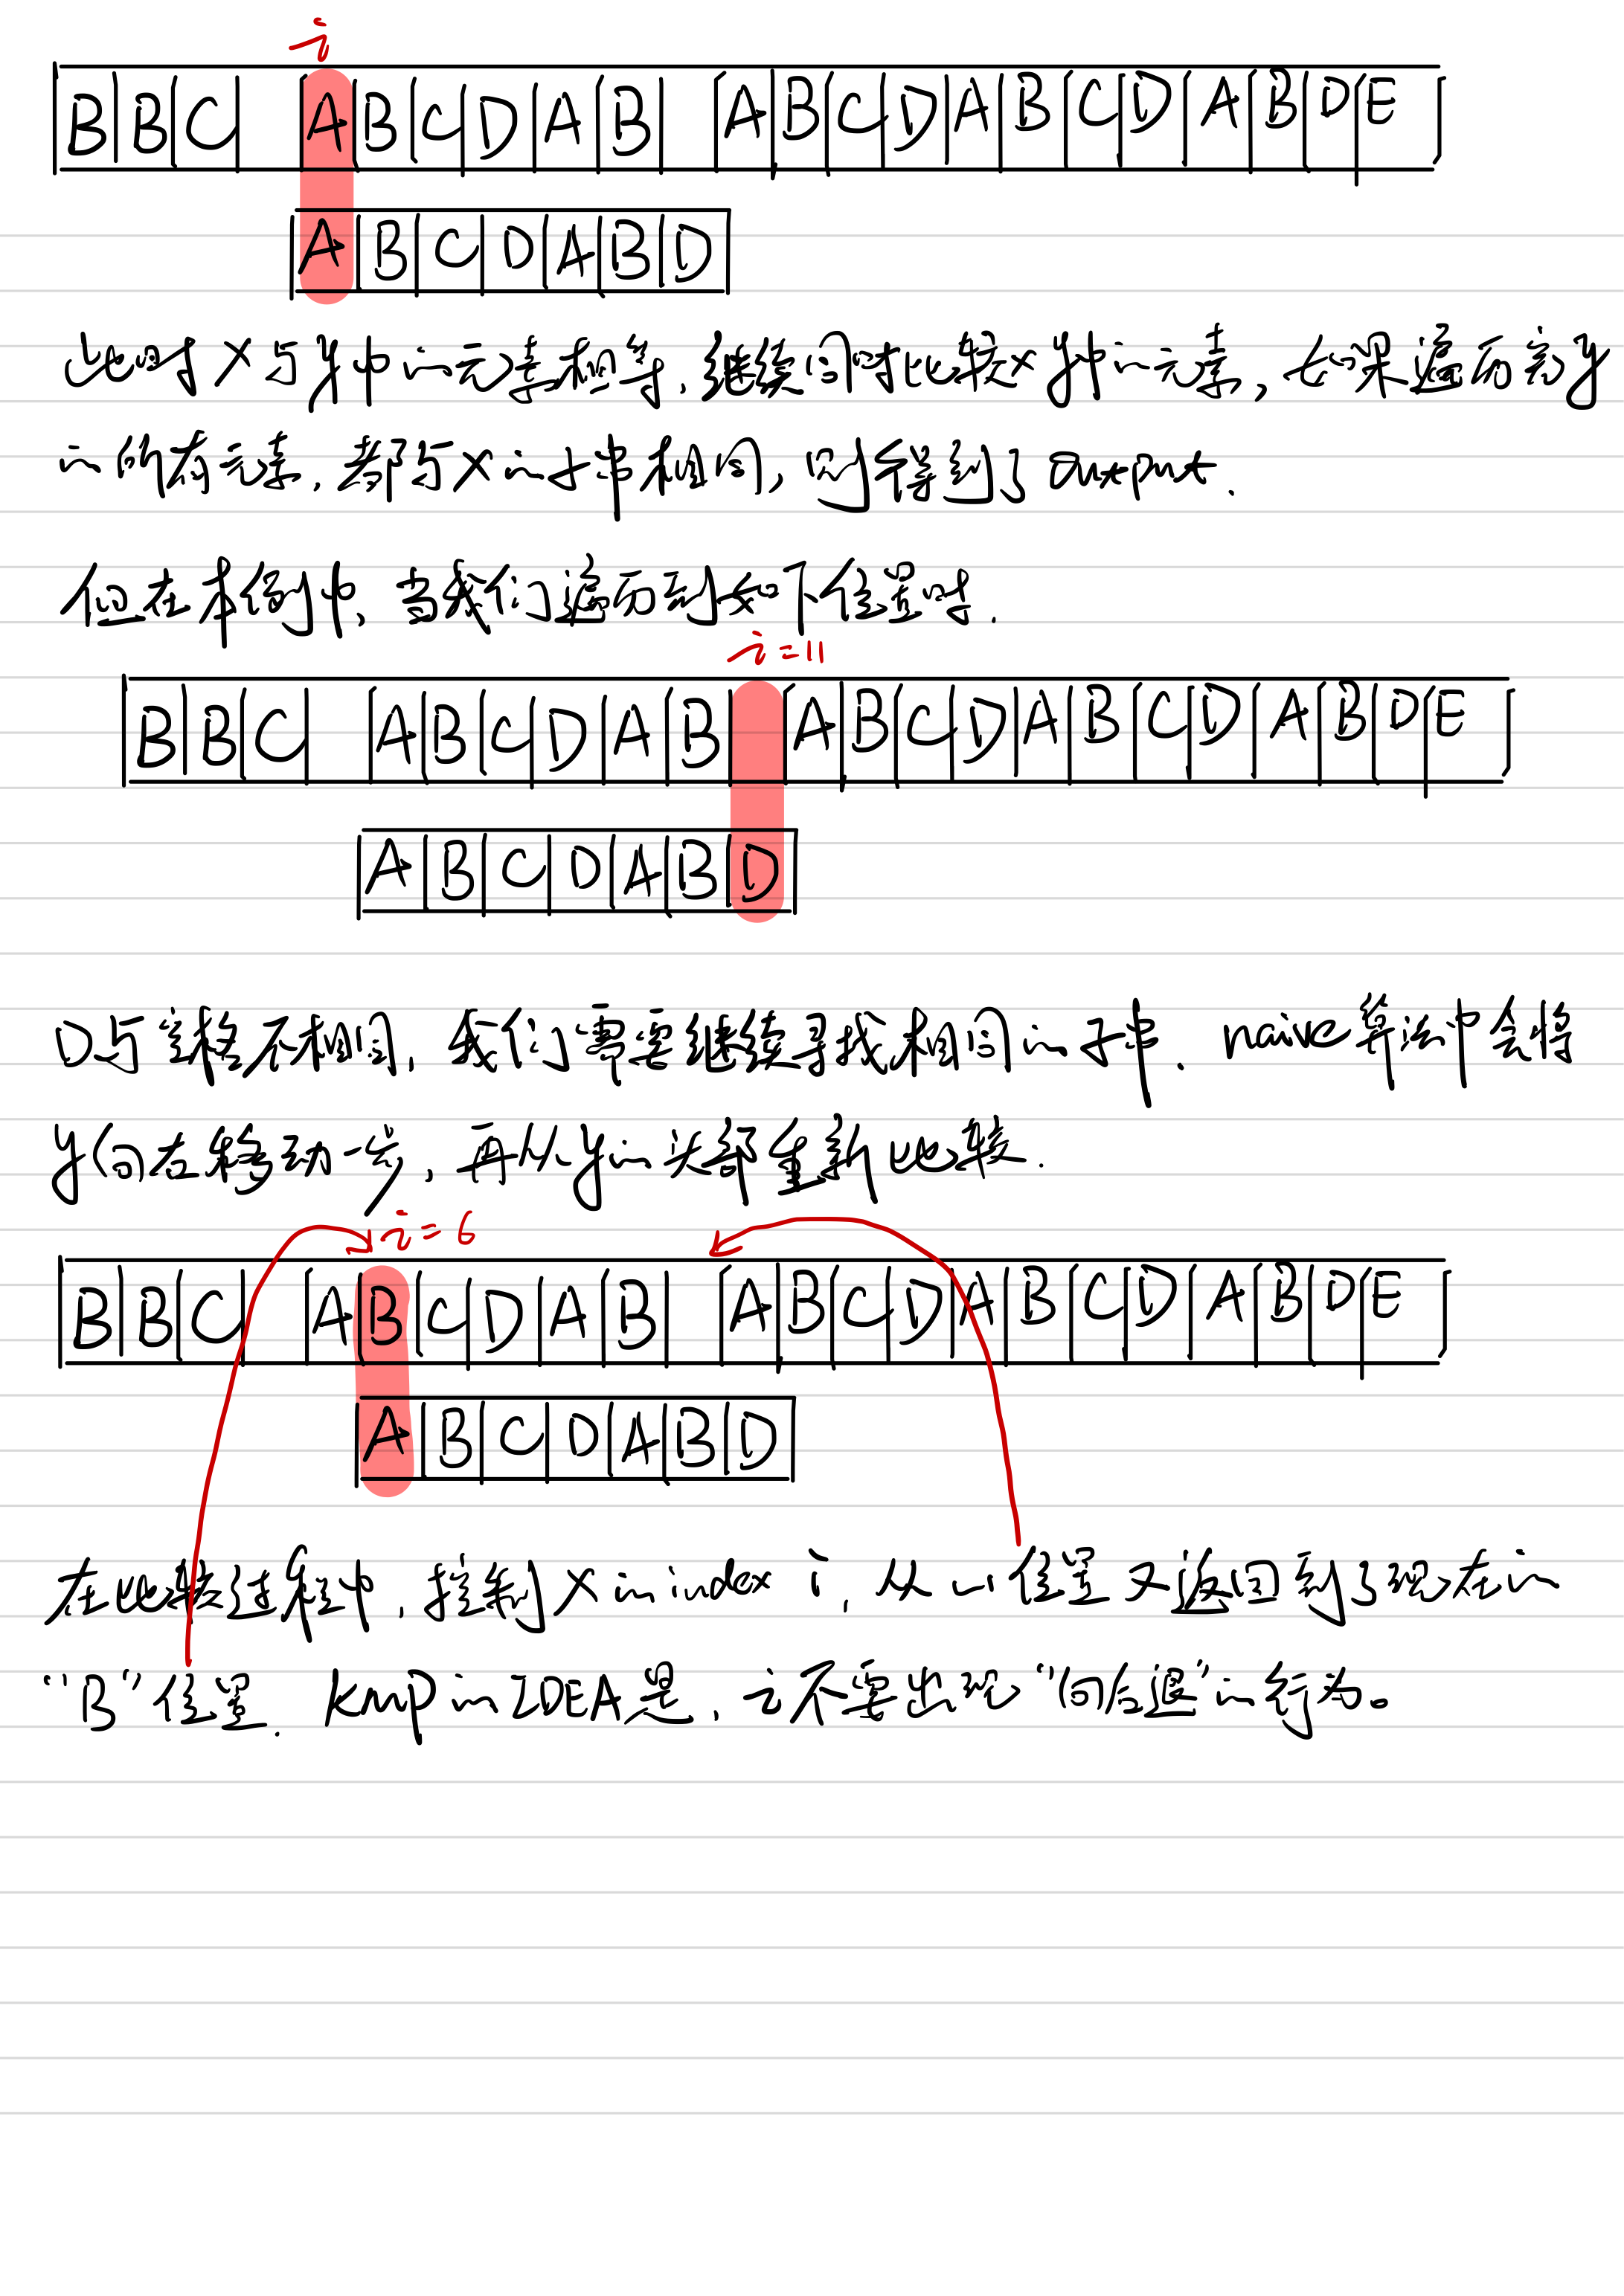 i
B B C A B C D A B A B C D A B C D A B D E
A B C D A B D
此时X与y中的元素相等,继续同时比较x y中的元素,如果遍历完y
的所有元素,都与X的子串相同,则得到了output.
但在本例中,当我们遍历到如下位置时.
i=11
B B C A B C D A B A B C D A B C D A B D E
A B C D A B D
D与空格不相同,我们需要继续寻找相同的子串.naive算法中会将
y向右移动一步,再从y的头部重新比较.
i=6
B B C A B C D A B A B C D A B C D A B D E
A B C D A B D
在比较过程中,指到X的index i,从 的位置又返回到了现在的
“B”位置.KMP的IDEA是,i不要出现“向后退”的行为。